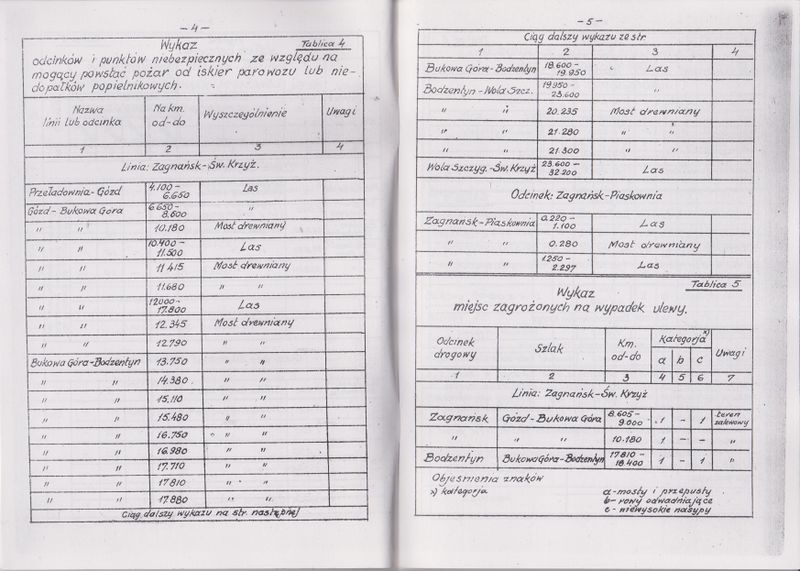 — 4 —
Wykaz Tablica 4
odcinków i punktów niebezpiecznych ze względu na
mogący powstać pożar od iskier parowozu lub nie-
dopałków popielnikowych.
Nazwa linii lub odcinka Na km. od-do Wyszczególnienie Uwagi
1 2 3 4
Linia: Zagnańsk-Św. Krzyż.
Przeładownia-Gózd 4.100-6.650 Las
Gózd-Bukowa Gora 6.650-8.600 "
" " 10.180 Most drewniany
" " 10.400-11.500 Las
" " 11.415 Most drewniany
" " 11.680 " "
" " 12000-17.800 Las
" " 12.345 Most drewniany
" " 12.790 " "
Bukowa Góra-Bodzentyn 13.750 " "
" " 14.380 " "
" " 15.110 " "
" " 15.480 " "
" " 16.750 " "
" " 16.980 " "
" " 17.710 " "
" " 17.810 " "
" " 17.880 " "
Ciąg dalszy wykazu na str. następnej
— 5 —
Ciąg dalszy wykazu ze str.
1 2 3 4
Bukowa Góra-Bodzentyn 18.600-19.950 Las
Bodzentyn-Wola Szcz. 19950-23.600 "
" " 20.235 Most drewniany
" " 21.280 " "
" " 21.300 " "
Wola Szczyg.-Św. Krzyż 23.600-32.200 Las
Odcinek: Zagnańsk-Piaskownia
Zagnańsk-Piaskownia 0.220-1.100 Las
" " 0.280 Most drewniany
" " 1250-2.297 Las
Tablica 5
Wykaz
miejsc zagrożonych na wypadek ulewy.
Odcinek drogowy Szlak Km. od-do Kategorja x) a b c Uwagi
1 2 3 4 5 6 7
Linia: Zagnańsk-Św. Krzyż
Zagnańsk Gózd-Bukowa Góra 8.605-9.000 1 - 1 teren zalewowy
" " " 10.180 1 - - "
Bodzentyn Bukowa Góra-Bodzentyn 17810-18.400 1 - 1 "
Objeśnienia znaków
x) kategorja a-mosty i przepusty
b-rowy odwadniające
c-niewysokie nasypy